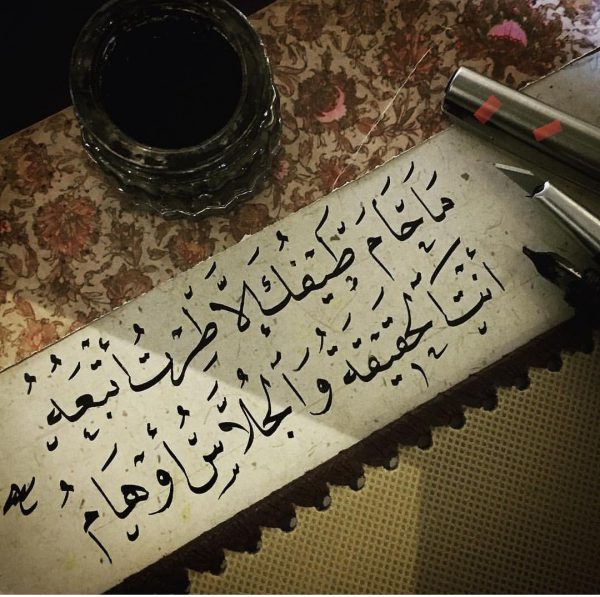 مَا حَامَ طَيفُكِ إلاَّ طِرْتُ أتْبَعُهُ
أنْتَ الحَقِيقَةُ وَالجُلاَّسُ أوْهَامُ